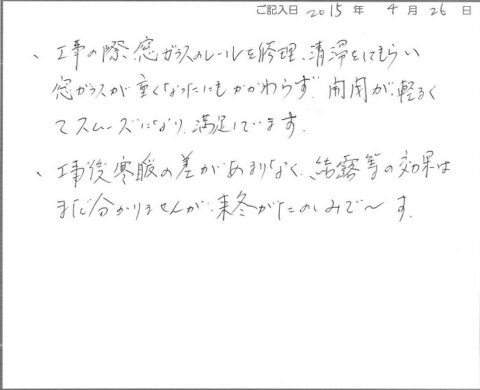 ご記入日 2015 年 4 月 26 日
、工事の際、窓ガラスのレールを修理、清掃をしてもらい
窓ガラスが重くなったにもかかわらず、開閉が軽るく
てスムーズになり、満足しています。
、工事後寒暖の差があまりなく、結露等の効果は
まだ分かりませんが、来冬がたのしみで〜す。